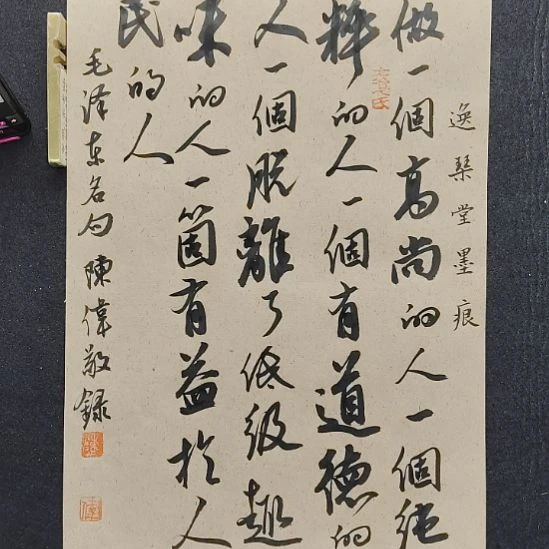 做一個高尚的人一個純
粹的人一個有道德的
人一個脫離了低級趣
味的人一箇有益於人
民的人
毛澤东名句陳偉敬錄
逸琴堂墨痕